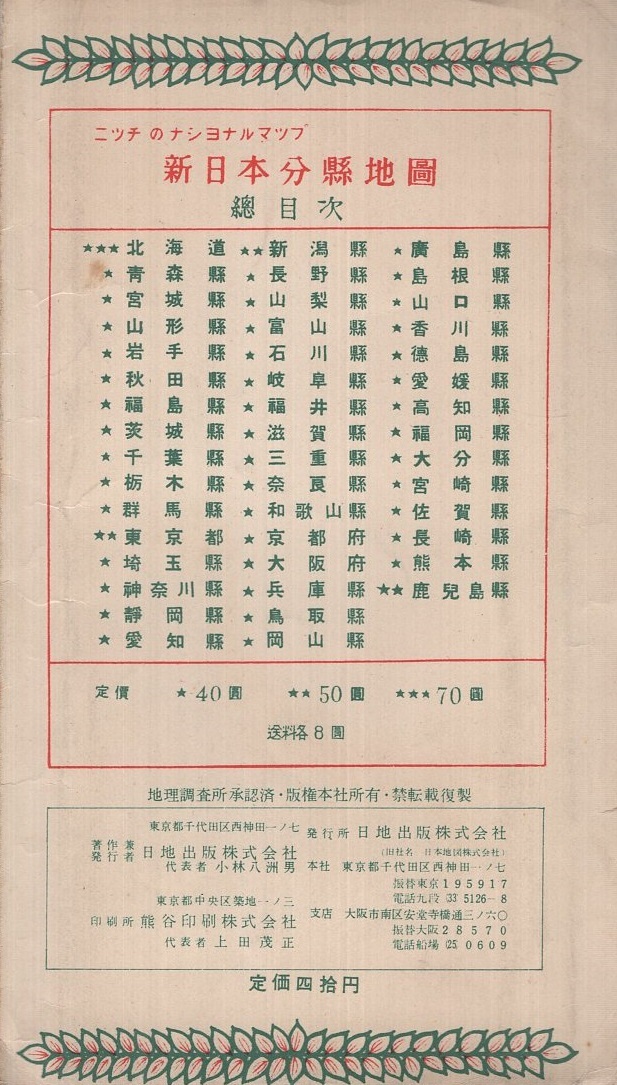 ニツチのナシヨナルマツプ
新日本分縣地圖
總目次
★★★北海道
★青森縣
★宮城縣
★山形縣
★岩手縣
★秋田縣
★福島縣
★茨城縣
★千葉縣
★栃木縣
★群馬縣
★★東京都
★埼玉縣
★神奈川縣
★靜岡縣
★愛知縣
★★新潟縣
★長野縣
★山梨縣
★富山縣
★石川縣
★岐阜縣
★福井縣
★滋賀縣
★三重縣
★奈良縣
★和歌山縣
★京都府
★大阪府
★兵庫縣
★鳥取縣
★岡山縣
★廣島縣
★島根縣
★山口縣
★香川縣
★德島縣
★愛媛縣
★高知縣
★福岡縣
★大分縣
★宮崎縣
★佐賀縣
★長崎縣
★熊本縣
★★鹿兒島縣
定價 ★40圓 ★★50圓 ★★★70圓
送料各8圓
地理調査所承認済・版権本社所有・禁転載復製
東京都千代田区西神田一ノ七
著作兼発行者 日地出版株式会社
代表者 小林八洲男
東京都中央区築地一ノ三
印刷所 熊谷印刷株式会社
代表者 上田茂正
発行所 日地出版株式会社
(旧社名 日本地図株式会社)
本社 東京都千代田区西神田一ノ七
振替東京195917
電話九段(33)5126-8
支店 大阪市南区安堂寺橋通三ノ六〇
振替大阪28570
電話船場(25)0609
定価四拾円